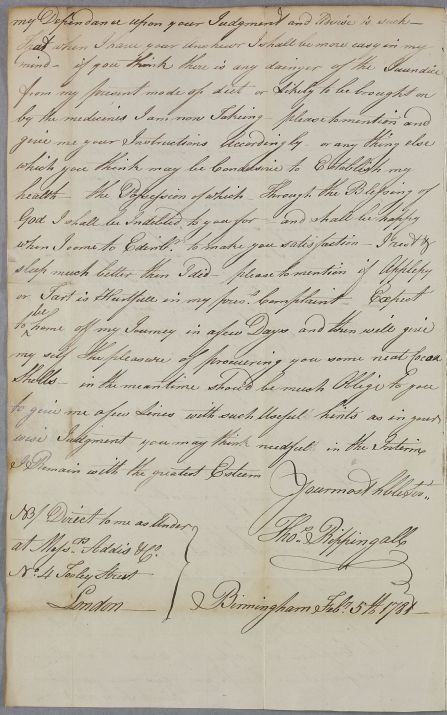 my Dependance upon your Judgment and Advice is such —
That when I have your Answer I shall be more easy in my
mind — if you think there is any dainger of the Jaundice
from my present mode of diet — or Likely to be brought on
by the medicines I am now Taking — please to mention and
give me your Instructions Accordingly — or any thing else
which you think may be Conducive to Establish my
health — the Possession of which — Through the Blessing of
God I shall be Indebted to you for — and shall be happy
when I come to Edenbr. to make you satisfaction —
sleep much better then I did — please to mention if Applepy
or Tart is Hurtfull in my pres.t Complaint — Expect
to be home off my Journey in a few Days and then will give
my self the pleasure of procuering you some neat
Shells — in the meantime shou'd be much Oblige to you
to give me a few Lines with such Useful hints as in your
wise Judgment you may think needful in the Interim
I Remain with the greatest Esteem
Your most hble Ser.t
Tho.s Rippingall
NB/ Direct to me as Under
at Mess.rs Addis & Co.
No. 4 Tooley Street
London
Birmingham Feb.y 5th 1781